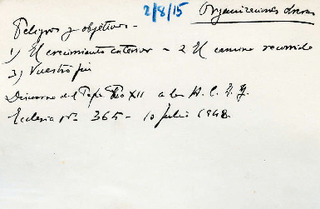 2/8/15
Organizaciones diversas
Peligros y objetivos -
1) El crecimiento exterior - 2 El camino recorrido
3) Vuestro fin
Discurso del Papa Pio XII a las A. C. I. J.
Ecclesia nº 365 - 10 Julio 1948.